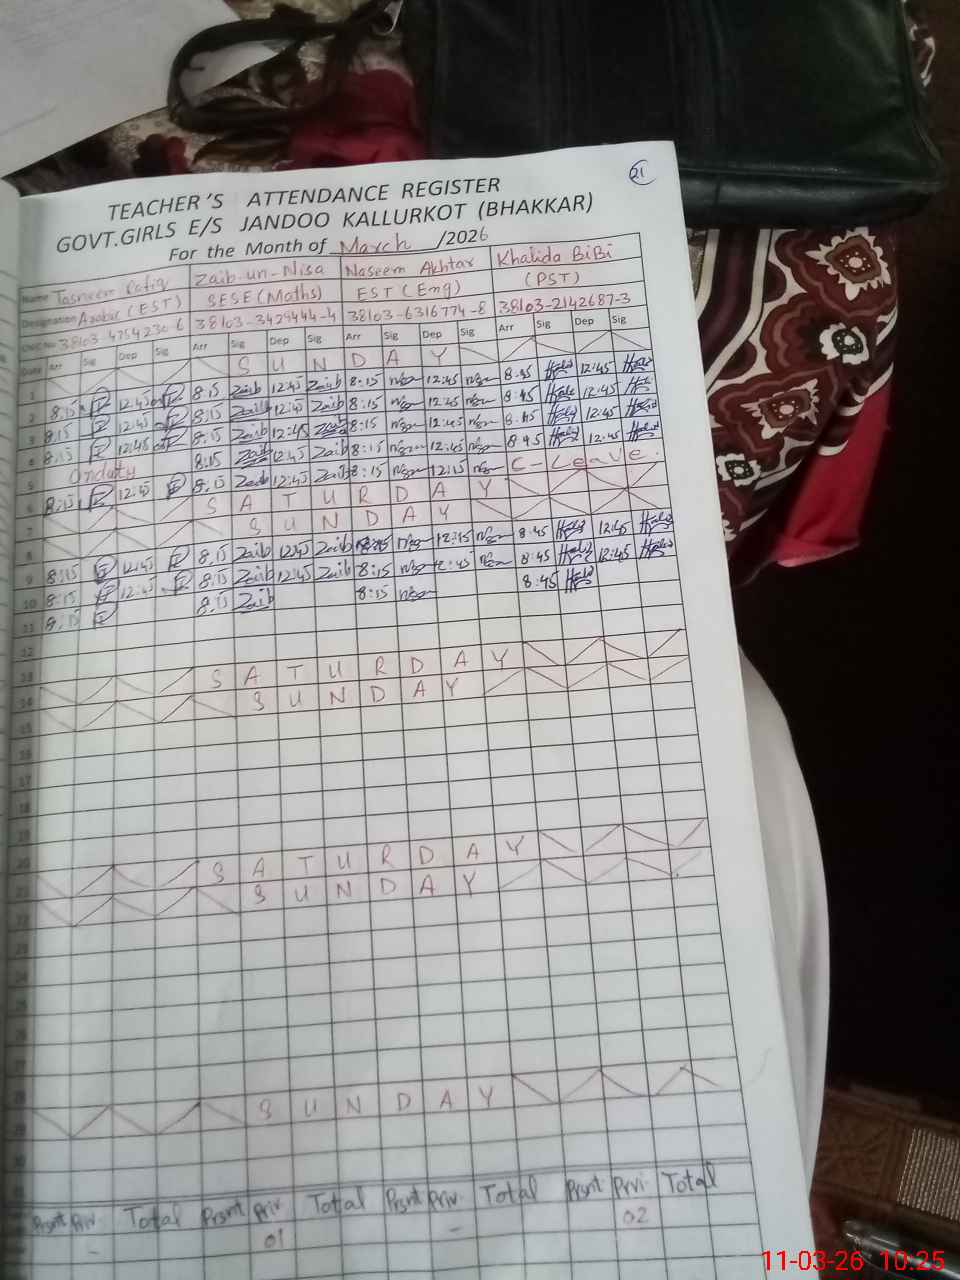 21
TEACHER'S ATTENDANCE REGISTER
GOVT.GIRLS E/S JANDOO KALLURKOT (BHAKKAR)
For the Month of March /2026
Name Tasneem Zaib-un-Nisa Naseem Akhtar Khalida BiBi
Designation Arabic (EST) SESE (Maths) EST (Eng) (PST)
38103-4754230-6 38103-3429444-4 38103-6316774-8 38103-2142687-3
Date Arr Sig Dep Sig Arr Sig Dep Sig Arr Sig Dep Sig Arr Sig Dep Sig
1 S U N D A Y
2 8:15 12:45 8:15 Zaib 12:45 Zaib 8:15 12:45 8:45 12:45
3 8:15 12:45 8:15 Zaib 12:45 Zaib 8:15 12:45 8:45 12:45
4 8:15 12:45 8:15 Zaib 12:45 8:15 12:45 8:45 12:45
5 8:15 Zaib 12:45 Zaib 8:15 12:45 8:45 12:45
6 8:15 12:45 8:15 Zaib 12:45 Zaib 8:15 12:15 C-Leave
7 S A T U R D A Y
8 S U N D A Y
9 8:15 12:45 8:15 Zaib 12:45 Zaib 12:45 8:45 12:45
10 8:15 12:45 8:15 Zaib 12:45 Zaib 8:15 12:45 8:45 12:45
11 8:15 8:15 Zaib 8:15 8:45
12
13
14 S A T U R D A Y
15 S U N D A Y
16
17
18
19
20
21 S A T U R D A Y
22 S U N D A Y
23
24
25
26
27
28
29 S U N D A Y
30
31
Prsnt Priv Total Prsnt Priv Total Prsnt Priv Total Prsnt Prvi Total
- 01 - 02
11-03-26 10:25